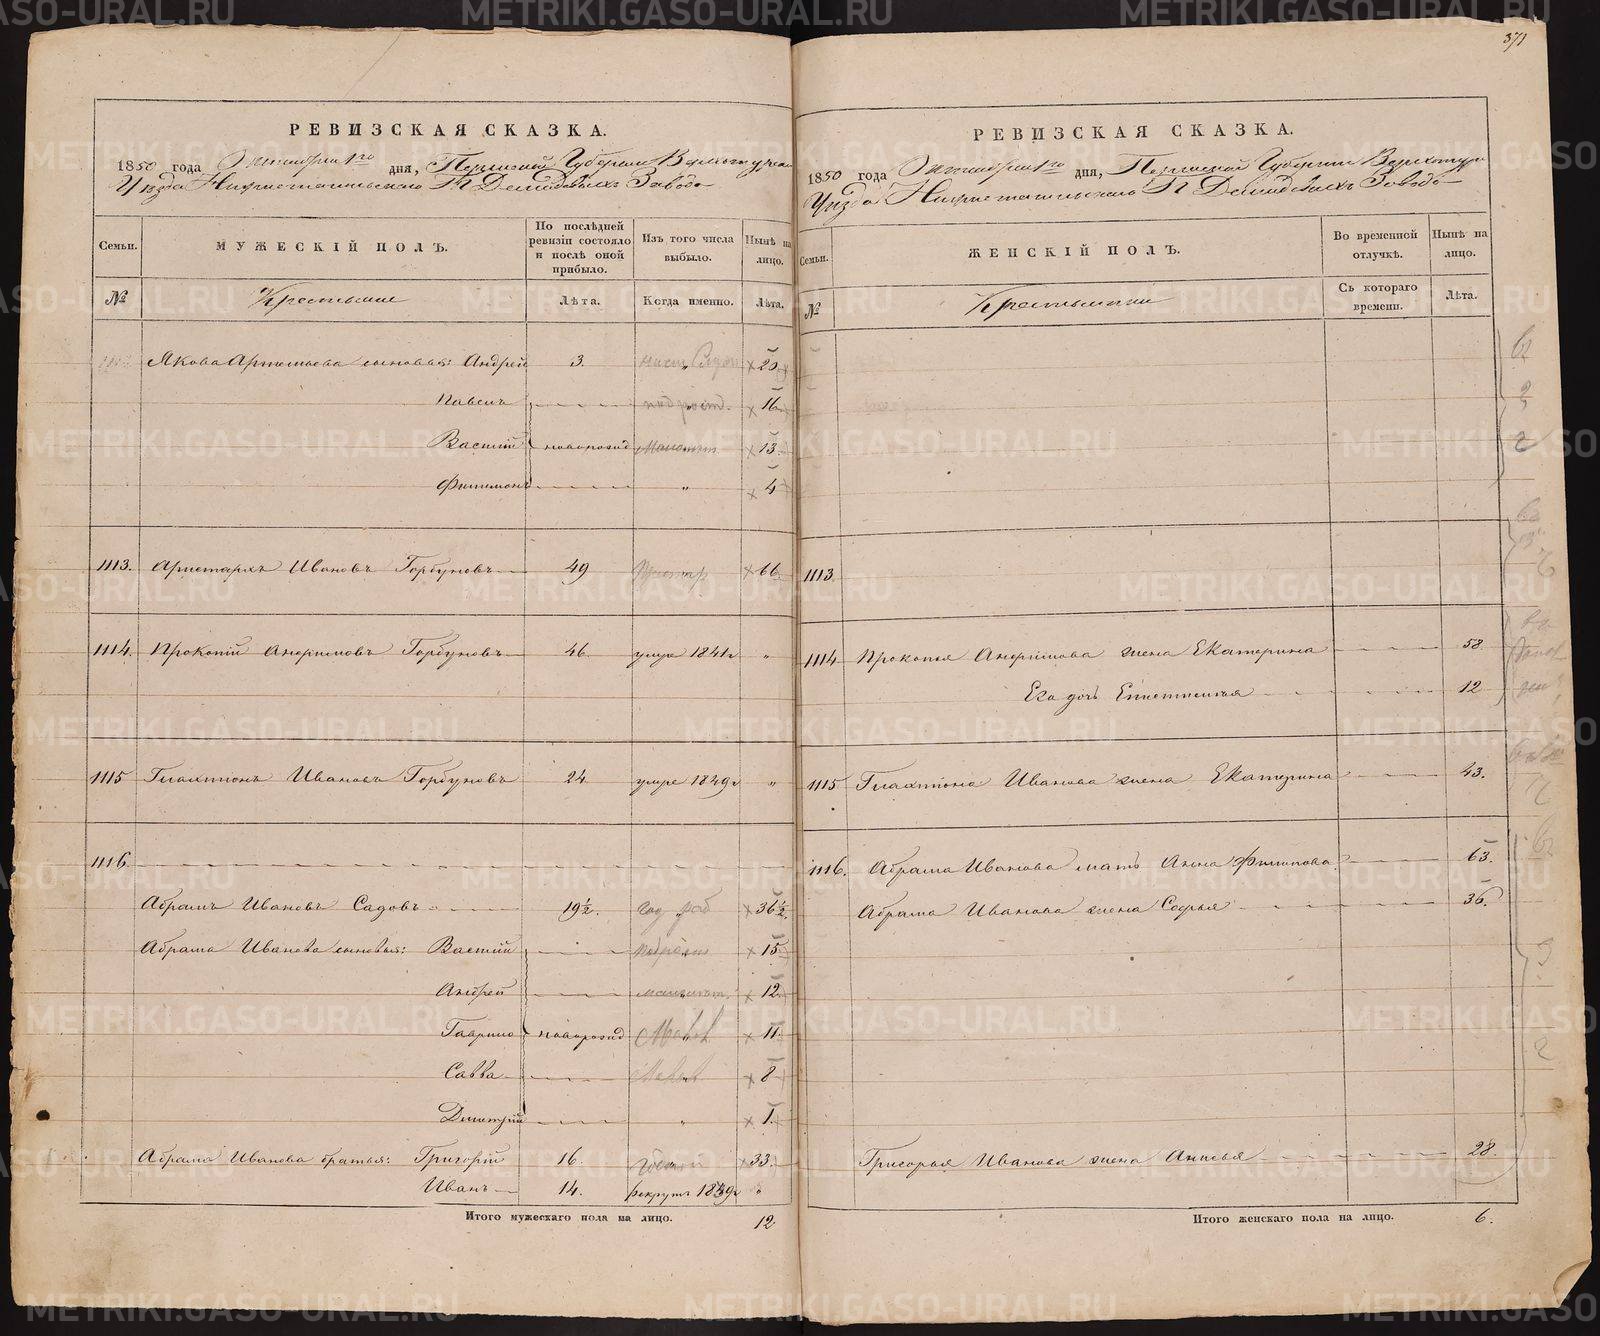 371
РЕВИЗСКАЯ СКАЗКА.
1850 года Октября 1го дня, Пермской Губернии Верхотурскаго
Уезда Нижнетагильскаго П Демидовыхъ Завода
Семьи.
МУЖЕСКІЙ ПОЛЪ.
По послѣдней ревизіи состояло и послѣ оной прибыло.
Изъ того числа выбыло.
Нынѣ на лицо.
№
Крестьяне
Лѣта.
Когда именно.
Лѣта.
Якова Артемьева сыновья: Андрей 3. " 20
Павелъ " 16
Василій новорожд 13
Филимонъ " 4
1113. Аристархъ Ивановъ Горбуновъ 49 66
1114. Прокопій Анфимовъ Горбуновъ 46 умре 1841г "
1115 Галактіонъ Ивановъ Горбуновъ 24 умре 1849г "
1116.
Абрамъ Ивановъ Садовъ 19½. " 36½
Абрама Иванова сыновья: Василій 15
Андрей 12
Гаврило новорожд 11
Савва 8
Дмитрій " 1
Абрама Иванова братья: Григорій 16. 33
Иванъ 14. рекрутъ 1839г "
Итого мужескаго пола на лицо. 12
РЕВИЗСКАЯ СКАЗКА.
1850 года Октября 1го дня, Пермской Губернии Верхотурс
Уезда Нижнетагильскаго П Демидовыхъ Завода
Семьи.
ЖЕНСКІЙ ПОЛЪ.
Во временной отлучкѣ.
Нынѣ на лицо.
№
Крестьянки
Съ котораго времени.
Лѣта.
1113
1114 Прокопья Анфимова жена Екатерина 58
Его дочь 12
1115 Галактіона Иванова жена Екатерина 43.
1116. Абрама Иванова мать Анна Филипова 63.
Абрама Иванова жена Софья 36.
Григорья Иванова жена Анисья 28
Итого женскаго пола на лицо. 6.
METRIKI.GASO-URAL.RU